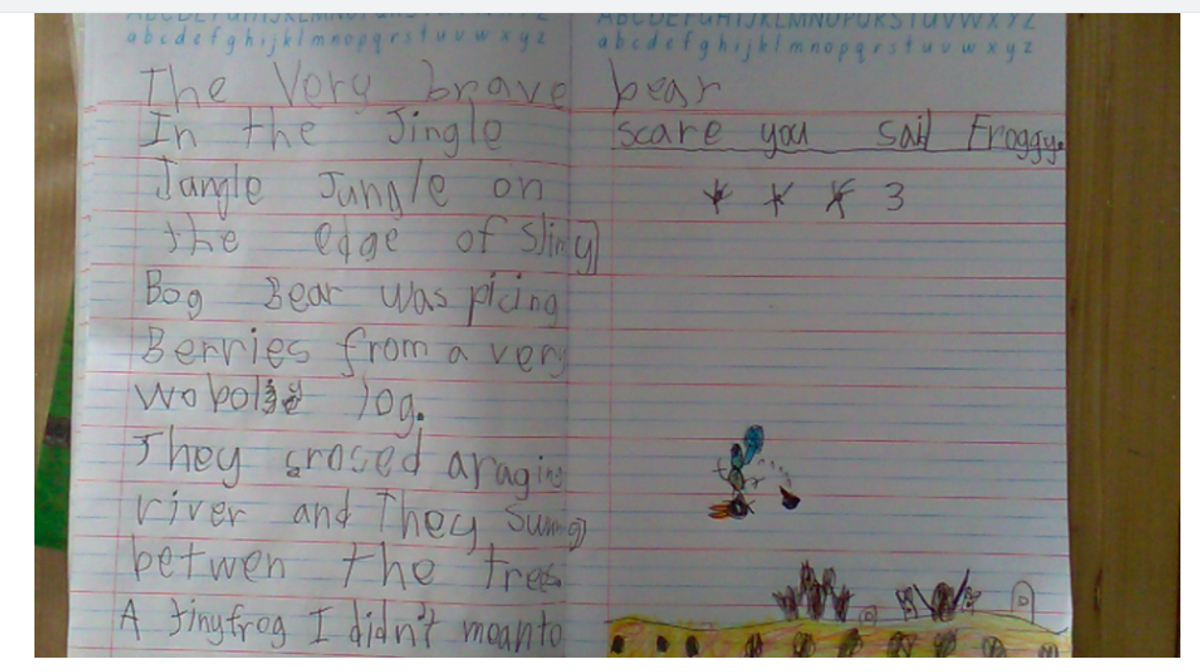 ABCDEFGHIJKLMNOPQRSTUVWXYZ
abcdefghijklmnopqrstuvwxyz
ABCDEFGHIJKLMNOPQRSTUVWXYZ
abcdefghijklmnopqrstuvwxyz
The Very brave bear
In the Jingle
Jangle Jungle on
the edge of Slimy
Bog Bear was picing
Berries from a very
log.
They crosed a raging
river and They
betwen the trees
A tiny frog I didn't mean to
scare you said Froggy.
* * * 3